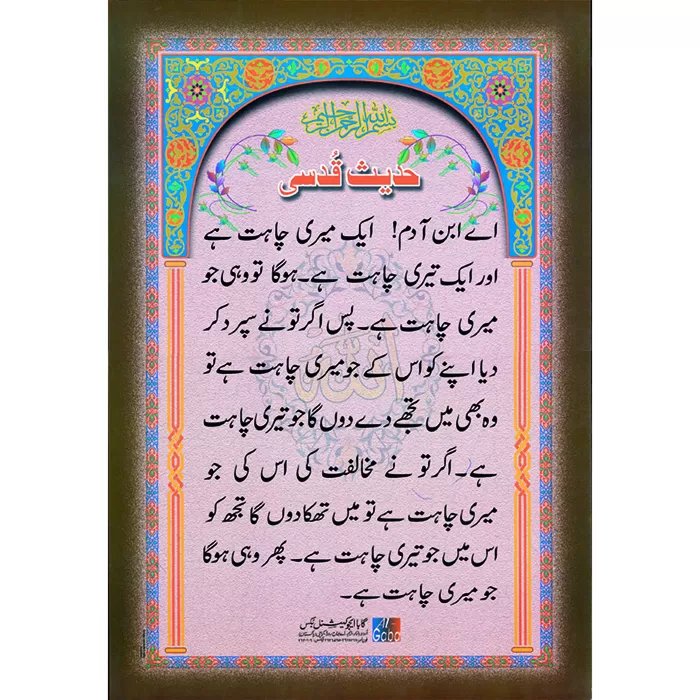 بسم الله الرحمن الرحيم
حدیث قُدسی
اے ابن آدم! ایک میری چاہت ہے
اور ایک تیری چاہت ہے۔ ہوگا تو وہی جو
میری چاہت ہے۔ پس اگر تو نے سپرد کر
دیا اپنے کو اس کے جو میری چاہت ہے تو
وہ بھی میں تجھے دے دوں گا جو تیری چاہت
ہے۔ اگر تو نے مخالفت کی اس کی جو
میری چاہت ہے تو میں تھکا دوں گا تجھ کو
اس میں جو تیری چاہت ہے۔ پھر وہی ہوگا
جو میری چاہت ہے۔
گابا ایجوکیشنل بکس
Gaba